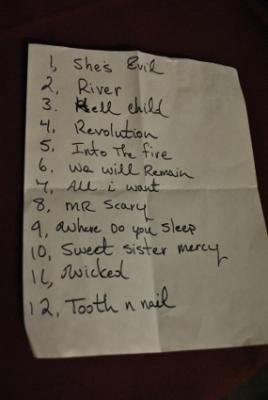 1, She's Evil
2. River
3. Hell child
4. Revolution
5. Into The fire
6. we will Remain
7, All i want
8, MR Scary
9, Where Do you Sleep
10, Sweet sister mercy
11, Wicked
12, Tooth n nail